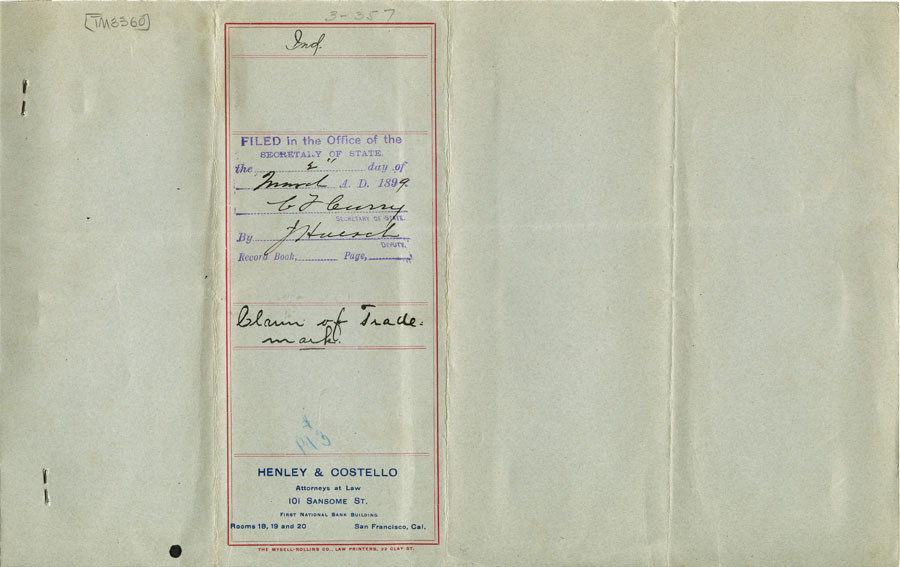 [TM3360]
3-357
Ind.
FILED in the Office of the
SECRETARY OF STATE.
the 2" day of
March A. D. 1899.
C F Curry
SECRETARY OF STATE.
By J Hoesch
DEPUTY.
Record Book, Page,
Claim of Trade-
mark.
HENLEY & COSTELLO
Attorneys at Law
101 SANSOME ST.
FIRST NATIONAL BANK BUILDING
Rooms 18, 19 and 20 San Francisco, Cal.
THE MYSELL-ROLLINS CO., LAW PRINTERS, 22 CLAY ST.